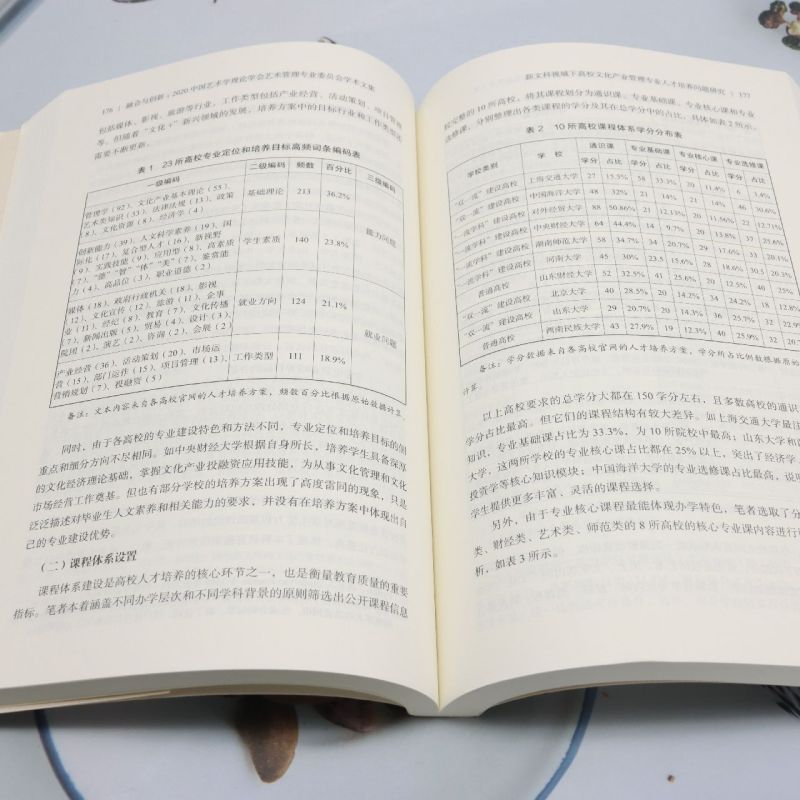 176 | 融合与创新:2020中国艺术学理论学会艺术管理专业委员会学术文集
包括媒体、影视、旅游等行业,工作类型包括产业经营、活动策划、项目管理
等。但随着“文化+”新兴领域的发展,培养方案中的目标行业和工作类型还
需要不断更新。
表1 23所高校专业定位和培养目标高频词条编码表
一级编码 二级编码 频数 百分比 三级编码
管理学(92)、文化产业基本理论(55)、
艺术类知识(33)、法律法规(13)、政策
(8)、文化资源(8)、经济学(4)
基础理论 213 36.2%
创新能力(39)、人文科学素养(19)、国
际化(17)、复合型人才(16)、新视野
(9)、实践技能(9)、应用型(8)、高素质
(7)、“德”“智”“体”“美”(7)、鉴赏能
力(4)、高品位(3)、职业道德(2)
学生素质 140 23.8%
能力问题
媒体(18)、政府行政机关(18)、影视
(12)、文化宣传(12)、旅游(11)、企事
业(11)、经纪(8)、教育(7)、文化传播
(7)、新闻出版(5)、贸易(4)、设计(3)、
院团(2)、演艺(2)、咨询(2)、会展(2)
就业方向 124 21.1%
就业问题
产业经营(36)、活动策划(20)、市场运
营(15)、部门运作(15)、项目管理(13)、
营销规划(7)、投融资(5)
工作类型 111 18.9%
备注:文本内容来自各高校官网的人才培养方案,频数百分比根据原始数据计算
同时,由于各高校的专业建设特色和方法不同,专业定位和培养目标的侧
重点和细分方向不尽相同。如中央财经大学根据自身所长,培养学生具备深厚
的文化经济理论基础,掌握文化产业投融资应用技能,为从事文化管理和文化
市场经营工作奠基。但也有部分学校的培养方案出现了高度雷同的现象,只是
泛泛描述对毕业生人文素养和相关能力的要求,并没有在培养方案中体现出自
己的专业建设优势。
(二)课程体系设置
课程体系建设是高校人才培养的核心环节之一,也是衡量教育质量的重要
指标。笔者本着涵盖不同办学层次和不同学科背景的原则筛选出公开课程信息
新文科视域下高校文化产业管理专业人才培养问题研究 | 177
较完整的10所高校,将其课程划分为通识课、专业基础课、专业核心课和专业
选修课,分别整理出各类课程的学分及其在总学分中的占比,具体如表2所示。
表2 10所高校课程体系学分分布表
学校类别 学校 通识课 专业基础课 专业核心课 专业选修课
学分 占比 学分 占比 学分 占比 学分 占比
“双一流”建设高校 上海交通大学 27 15.5% 58 33.3% 20 11.4% 6 3.4%
“双一流”建设高校 中国海洋大学 48 32% 21 14% 21 14% 46 30.6%
“一流学科”建设高校 对外经贸大学 88 50.86% 21 12.13% 20 11.56% 22 12.71%
“一流学科”建设高校 中央财经大学 64 44.4% 14 9.7% 20 13.8% 37 25.6%
“一流学科”建设高校 湖南师范大学 58 34.7% 34 20.7% 29 17.6% 33 20.1%
“一流学科”建设高校 河南大学 45 30% 23.5 15.6% 28 18.6% 30.5 20.3%
普通高校 山东财经大学 52 32.5% 41 25.6% 20 12.5% 40 25%
“双一流”建设高校 北京大学 40 28.5% 20 14.2% 34 24.2%
“双一流”建设高校 山东大学 29 20.7% 20 14.3% 36 25.7%
普通高校 西南民族大学 43 27.9% 19 12.3% 40 25.9%
备注:学分数据来自各高校官网的人才培养方案,学分所占比例数据根据原始
计算。
以上高校要求的总学分大都在150学分左右,且多数高校的通识
学分占比最高。但它们的课程结构有较大差异。如上海交通大学最注
知识,专业基础课占比为33.3%,为10所院校中最高;山东大学和
大学,这两所学校的专业核心课占比都在25%以上,突出了经济学、
投资学等核心知识模块;中国海洋大学的专业选修课占比最高,说明
学生提供更多丰富、灵活的课程选择。
另外,由于专业核心课程最能体现办学特色,笔者选取了分
类、财经类、艺术类、师范类的8所高校的核心专业课内容进行
析,如表3所示。